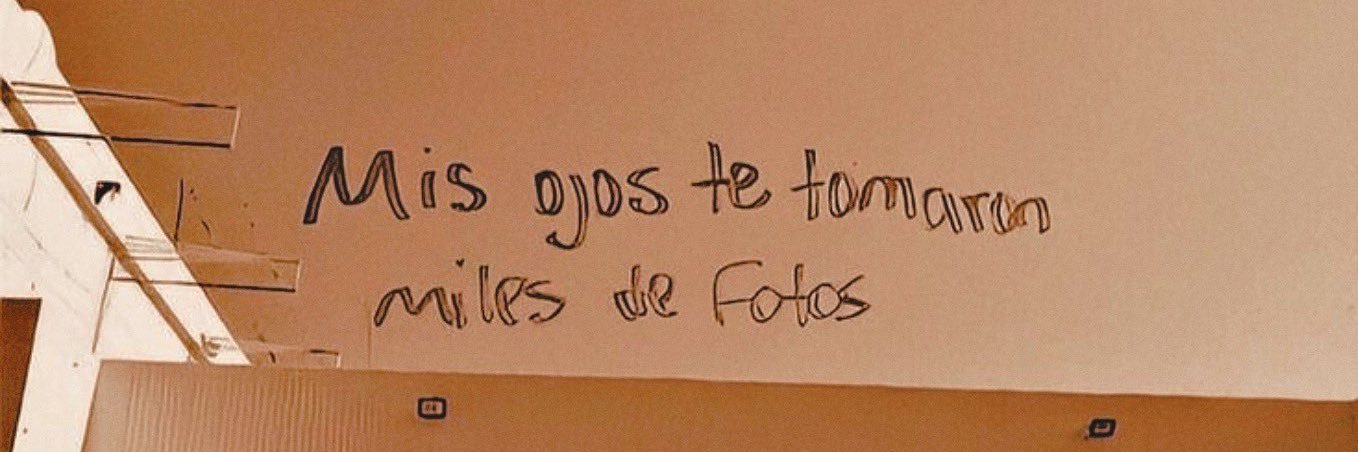 Mis ojos te tomaron
miles de Fotos